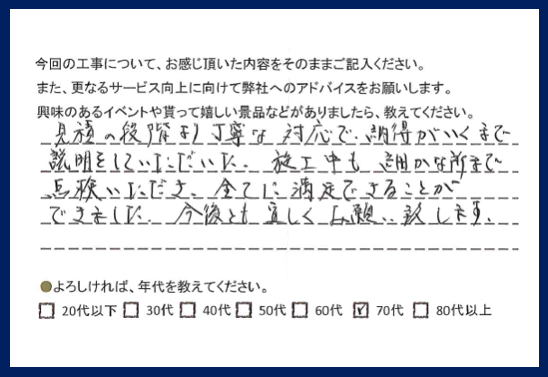 今回の工事について、お感じ頂いた内容をそのままご記入ください。
また、更なるサービス向上に向けて弊社へのアドバイスをお願いします。
興味のあるイベントや貰って嬉しい景品などがありましたら、教えてください。
見積の段階より丁寧な対応で、納得がいくまで
説明をしていただいた。施工中も細かな所まで
点検いただき、全てに満足できることが
できました。今後とも宜しくお願い致します。
●よろしければ、年代を教えてください。
□ 20代以下 □ 30代 □ 40代 □ 50代 □ 60代 ☑ 70代 □ 80代以上